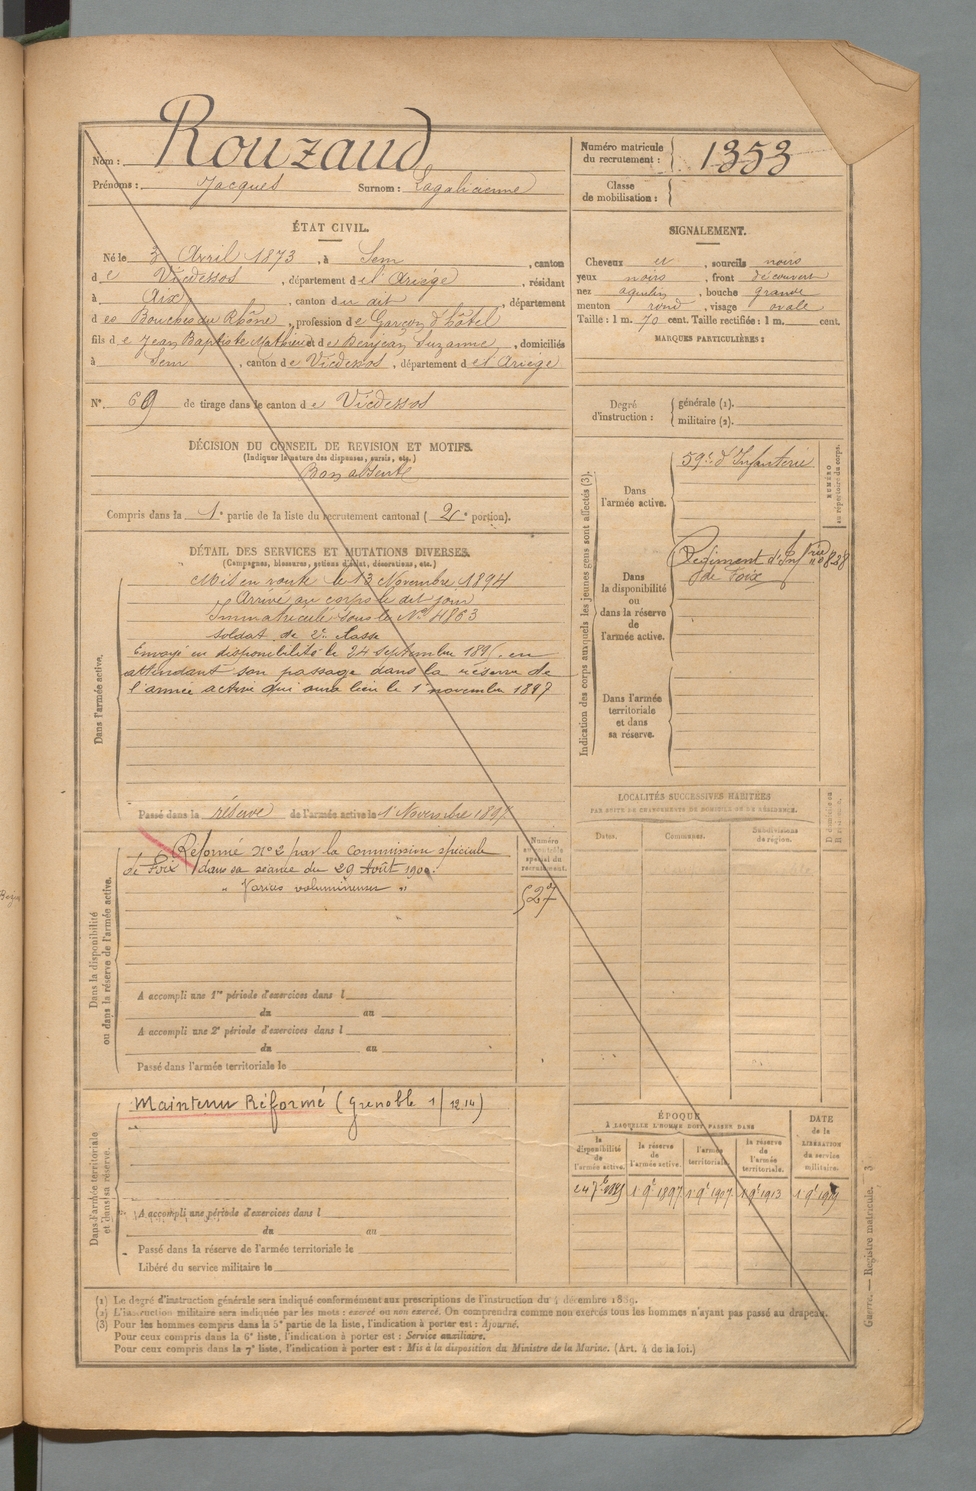 Nom : Rouzaud
Prénoms : Jacques Surnom :
Numéro matricule
du recrutement : 1353
Classe
de mobilisation :
ÉTAT CIVIL.
Né le 3 Avril 1873, à Sem, canton
de Vicdessos, département de l'Ariège, résidant
à Aix, canton du dit, département
des Bouches du Rhône, profession de Garçon d'hôtel
fils de Jean Baptiste Mathieu et de Benjean Suzanne, domiciliés
à Sem, canton de Vicdessos, département de l'Ariège
N° 69 de tirage dans le canton de Vicdessos
SIGNALEMENT.
Cheveux et, sourcils noirs
yeux noirs, front découvert
nez aquilin, bouche grande
menton rond, visage ovale
Taille : 1 m. 70 cent. Taille rectifiée : 1 m. cent.
MARQUES PARTICULIÈRES :
Degré
d'instruction :
générale (1).
militaire (2).
DÉCISION DU CONSEIL DE REVISION ET MOTIFS.
(Indiquer la nature des dispenses, sursis, etc.)
Bon absent
Compris dans la 1e partie de la liste du recrutement cantonal (2e portion).
DÉTAIL DES SERVICES ET MUTATIONS DIVERSES.
(Campagnes, blessures, actions d'éclat, décorations, etc.)
Dans l'armée active.
Mis en route le 13 Novembre 1894
Arrivé au corps le dit jour
Immatriculé sous le N° 4863
soldat de 2e classe
Envoyé en disponibilité le 24 septembre 1895, en
attendant son passage dans la réserve de
l'armée active qui aura lieu le 1er novembre 1897
Passé dans la réserve de l'armée active le 1er Novembre 1897
Dans la disponibilité
ou dans la réserve de l'armée active.
Réformé n°2 par la Commission spéciale
de Foix dans sa séance du 29 Août 1900.
" Varices volumineuses "
Numéro
au contrôle
spécial du
recrutement.
527
A accompli une 1re période d'exercices dans l
du au
A accompli une 2e période d'exercices dans l
du au
Passé dans l'armée territoriale le
Dans l'armée territoriale
et dans sa réserve.
Maintenu Réformé (Grenoble 1/12 14)
A accompli une période d'exercices dans l
du au
Passé dans la réserve de l'armée territoriale le
Libéré du service militaire le
Indication des corps auxquels les jeunes gens sont affectés (3).
Dans
l'armée active.
59e d'Infanterie
NUMÉRO
au répertoire du corps.
Dans
la disponibilité
ou dans la réserve
de
l'armée active.
Régiment d'Infrie n° 828
de Foix
Dans l'armée
territoriale
et dans
sa réserve.
LOCALITÉS SUCCESSIVES HABITÉES
PAR SUITE DE CHANGEMENTS DE DOMICILE OU DE RÉSIDENCE.
Dates.
Communes.
Subdivisions
de région.
D. domicile ou
R. résidence.
ÉPOQUE
À LAQUELLE L'HOMME DOIT PASSER DANS
la
disponibilité
de
l'armée active.
la réserve
de
l'armée active.
l'armée
territoriale.
la réserve
de
l'armée
territoriale.
DATE
de la
LIBÉRATION
du service
militaire.
1 9e 1897 1 9e 1907 1 9e 1913 1 9e 1919
(1) Le degré d'instruction générale sera indiqué conformément aux prescriptions de l'instruction du 4 décembre 1889.
(2) L'instruction militaire sera indiquée par les mots : exercé ou non exercé. On comprendra comme non exercés tous les hommes n'ayant pas passé au drapeau.
(3) Pour les hommes compris dans la 5e partie de la liste, l'indication à porter est : Ajourné.
Pour ceux compris dans la 6e liste, l'indication à porter est : Service auxiliaire.
Pour ceux compris dans la 7e liste, l'indication à porter est : Mis à la disposition du Ministre de la Marine. (Art. 4 de la loi.)
Guerre. — Registre matricule. 3